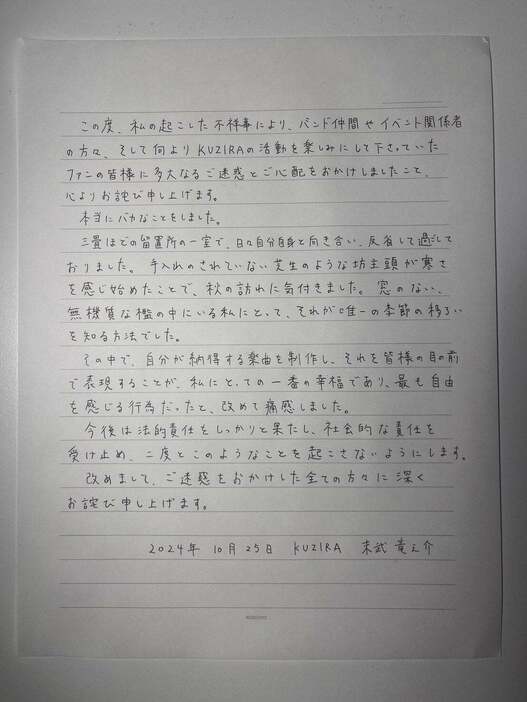 この度、私の起こした不祥事により、バンド仲間やイベント関係者
の方々、そして何よりKUZIRAの活動を楽しみにして下さっていた
ファンの皆様に多大なるご迷惑とご心配をおかけしましたこと、
心よりお詫び申し上げます。
本当にバカなことをしました。
三畳ほどの留置所の一室で、日々自分自身と向き合い、反省して過ごして
おりました。手入れのされていない芝生のような坊主頭が寒さ
を感じ始めたことで、秋の訪れに気付きました。窓のない、
無機質な檻の中にいる私にとって、それが唯一の季節の移ろい
を知る方法でした。
その中で、自分が納得する楽曲を制作し、それを皆様の目の前
で表現することが、私にとっての一番の幸福であり、最も自由
を感じる行為だったと、改めて痛感しました。
今後は法的責任をしっかりと果たし、社会的な責任を
受け止め、二度とこのようなことを起こさないようにします。
改めまして、ご迷惑をおかけした全ての方々に深く
お詫び申し上げます。
2024年 10月25日 KUZIRA 末武竜之介